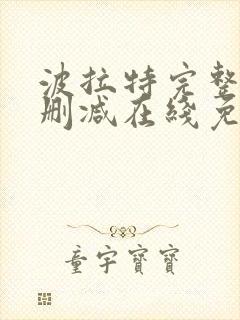 波拉特完整
删减在綫免
童宇寶寶